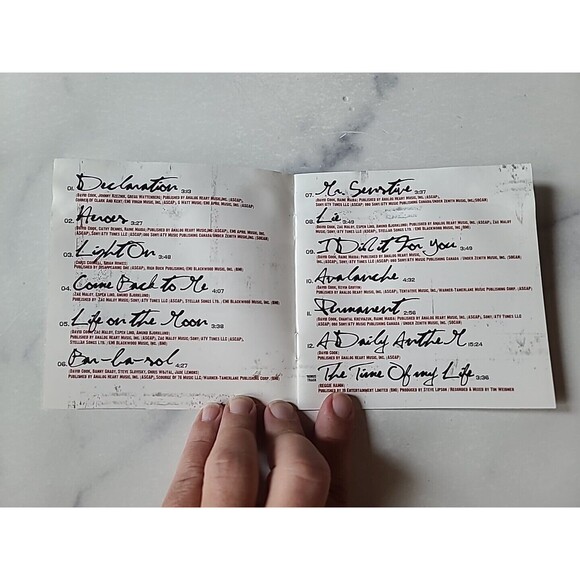 01. Declaration 3:13
(David Cook, Johnny Rzeznik, Gregg Wattenberg) Published by Analog Heart Music, Inc. (ASCAP),
Corner of Clark and Kent/EMI Virgin Music, Inc. (ASCAP), G Watt Music/EMI April Music, Inc. (ASCAP)
02. Heroes 3:27
(David Cook, Cathy Dennis, Raine Maida) Published by Analog Heart Music, Inc. (ASCAP), EMI April Music, Inc.
(ASCAP), Sony/ATV Tunes LLC (ASCAP) obo Sony/ATV Music Publishing Canada/Under Zenith Music, Inc. (SOCAN)
03. Light On 3:48
(Chris Cornell, Brian Howes)
Published by Disappearing One (ASCAP), High Buck Publishing/EMI Blackwood Music, Inc. (BMI)
04. Come Back to Me 4:07
(Zac Maloy, Espen Lind, Amund Bjorklund)
Published by Zac Maloy Music, Sony/ATV Tunes LLC (ASCAP), Stellar Songs Ltd./EMI Blackwood Music, Inc. (BMI)
05. Life on the Moon 3:38
(David Cook, Zac Maloy, Espen Lind, Amund Bjorklund)
Published by Analog Heart Music, Inc. (ASCAP), Zac Maloy Music, Sony/ATV Tunes LLC (ASCAP),
Stellar Songs Ltd./EMI Blackwood Music, Inc. (BMI)
06. Bar-ba-sol 4:27
(David Cook,
Published by Analog Heart Music, Inc. (ASCAP), Warner-Tamerlane Publishing Corp. (BMI)
07. Mr. Sensitive 3:37
(David Cook, Raine Maida) Published by Analog Heart Music, Inc. (ASCAP),
Sony/ATV Tunes LLC (ASCAP) obo Sony/ATV Music Publishing Canada/Under Zenith Music, Inc. (SOCAN)
08. Lie 3:49
(David Cook, Zac Maloy, Espen Lind, Amund Bjorklund) Published by Analog Heart Music, Inc. (ASCAP), Zac Maloy
Music, Sony/ATV Tunes LLC (ASCAP), Stellar Songs Ltd./EMI Blackwood Music, Inc. (BMI)
09. I Did it For You 3:49
(David Cook, Raine Maida) Published by Analog Heart Music, Inc. (ASCAP), Sony/ATV Tunes LLC (ASCAP)
obo Sony/ATV Music Publishing Canada/Under Zenith Music, Inc. (SOCAN)
10. Avalanche 4:32
(David Cook, Kevin Griffin)
Published by Analog Heart Music, Inc. (ASCAP), Tentative Music/Warner-Tamerlane Music Publishing Corp. (ASCAP)
11. Permanent 2:56
(David Cook, Chantal Kreviazuk, Raine Maida) Published by Analog Heart Music, Inc. (ASCAP), Sony/ATV Tunes LLC (ASCAP)
obo Sony/ATV Music Publishing Canada/Under Zenith Music, Inc. (SOCAN)
12. A Daily AntheM 15:24
(David Cook)
Published by Analog Heart Music, Inc. (ASCAP)
Bonus Track The Time Of my Life 3:36
(Regie Hamm)
Published by 19 Entertainment Limited (BMI) Produced by Steve Lipson/Recorded & Mixed by Tim Weidner